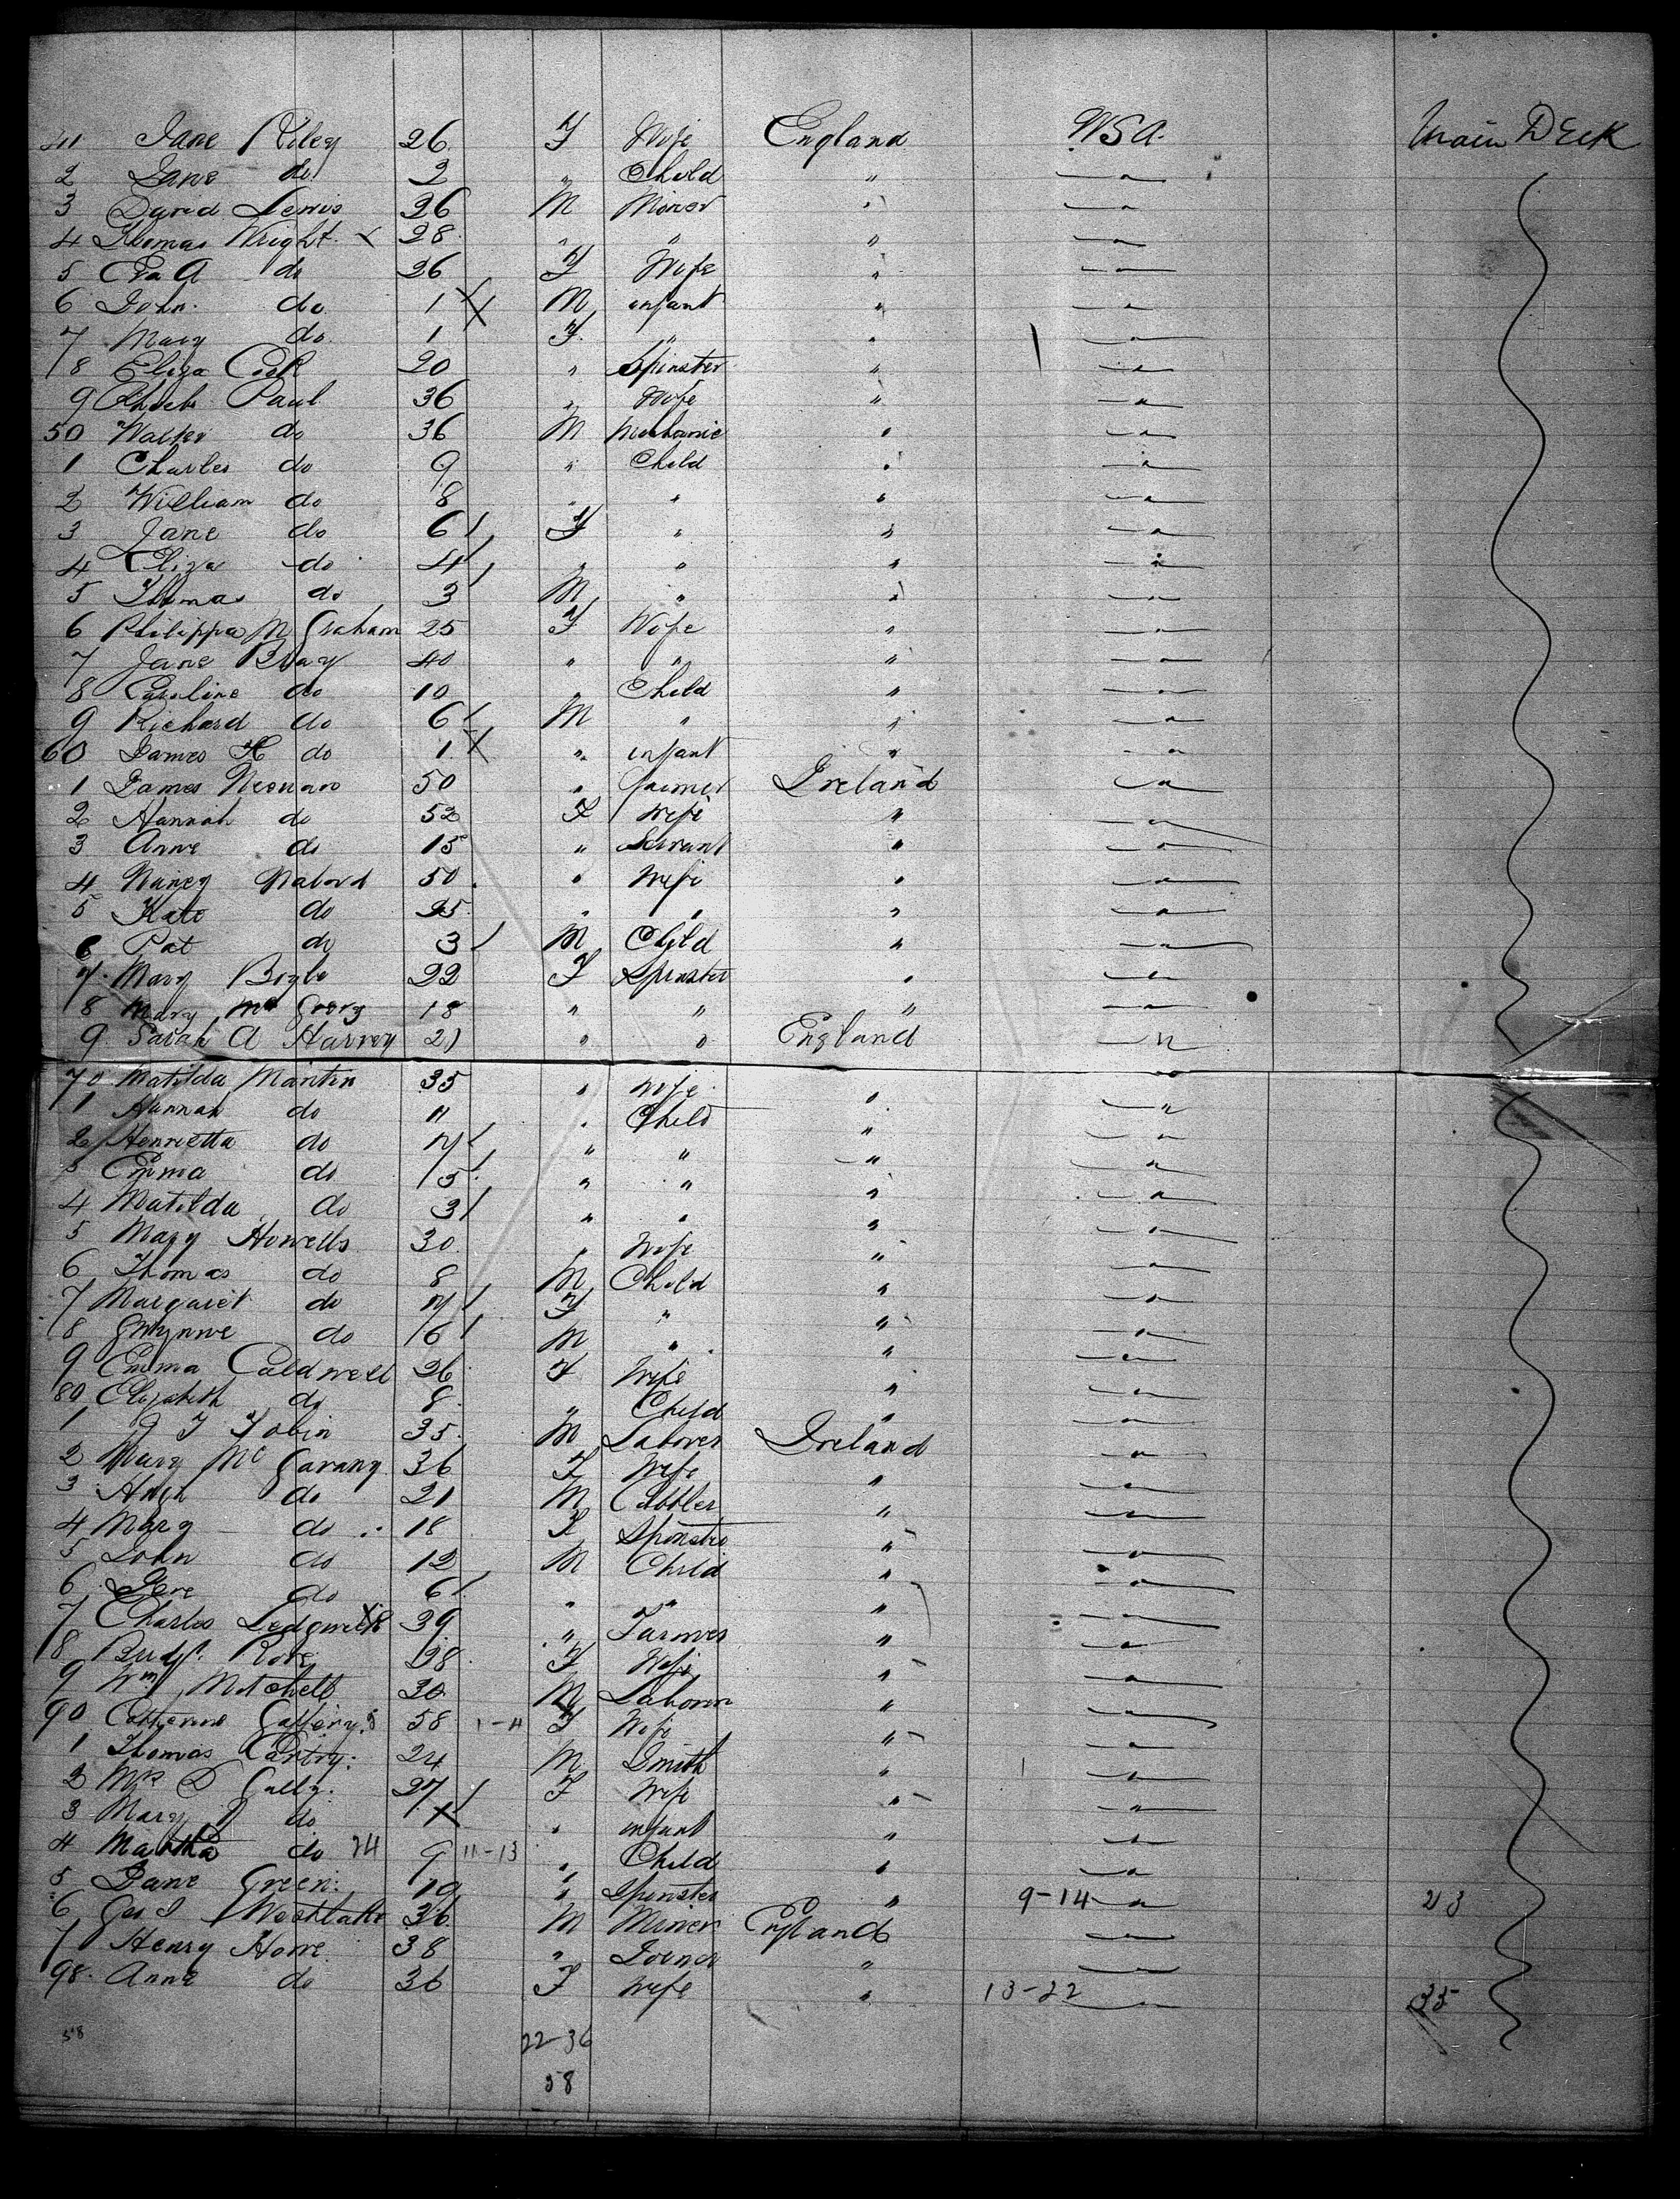 41 Jane Riley 26 F Wife England USA. Main Deck
2 Jane do 2 " Child " — " —
3 David Lewis 26 M Miner " — " —
4 Thomas Wright 28 " " " — " —
5 Eva A do 26 F Wife " — " —
6 John do 1 M infant " — " —
7 Mary do 1 F " " — " —
8 Eliza Cook 20 " Spinster " — " —
9 Phoebe Paul 36 " Wife " — " —
50 Walter do 36 M Mechanic " — " —
1 Charles do 9 " Child " — " —
2 William do 8 " " " — " —
3 Jane do 6 F " " — " —
4 Eliza do 4 " " " — " —
5 Thomas do 3 M " " — " —
6 Philippa M Graham 25 F Wife " — " —
7 Jane Bray 40 " " " — " —
8 Caroline do 10 " Child " — " —
9 Richard do 6 M " " — " —
60 James H do 1 " infant " — " —
1 James 50 " Farmer Ireland — " —
2 Hannah do 52 F Wife " — " —
3 Anne do 15 " Servant " — " —
4 Nancy 50 " Wife " — " —
5 Kate do 25 " " " — " —
6 Pat do 3 M Child " — " —
7 Mary Boyle 22 F Spinster " — " —
8 Mary Mc 18 " " " — " —
9 Sarah A Harvey 21 " " England — " —
70 Matilda Martin 35 " Wife " — " —
1 Hannah do 11 " Child " — " —
2 Henrietta do 7 " " " — " —
3 Emma do 5 " " " — " —
4 Matilda do 3 " " " — " —
5 Mary Howells 30 " Wife " — " —
6 Thomas do 8 M Child " — " —
7 Margaret do 7 F " " — " —
8 Gwynne do 6 M " " — " —
9 Emma Caldwell 26 F Wife " — " —
80 Elizabeth do 8 " Child " — " —
1 J Tobin 35 M Laborer Ireland — " —
2 Mary Mc Garany 36 F Wife " — " —
3 Hugh do 21 M " — " —
4 Mary do 18 F Spinster " — " —
5 John do 12 M Child " — " —
6 do 6 " " " — " —
7 Charles 39 " Farmer " — " —
8 Bridgt. 28 F Wife " — " —
9 Wm Mitchell 30 M Laborer " — " —
90 Catherine 58 1-4 F Wife " — " —
1 Thomas 24 M Smith " — " —
2 Mrs D 27 F Wife " — " —
3 Mary do 1 " infant " — " —
4 Martha do 24 9 11-13 " Child " — " —
5 Jane Green 19 " Spinster " 9-14 — " — 23
6 Westlake 36 M Miner England — " —
7 Henry Howe 38 " " — " —
98 Anne do 36 F Wife " 13-22 — " — 35
58 22-36
58